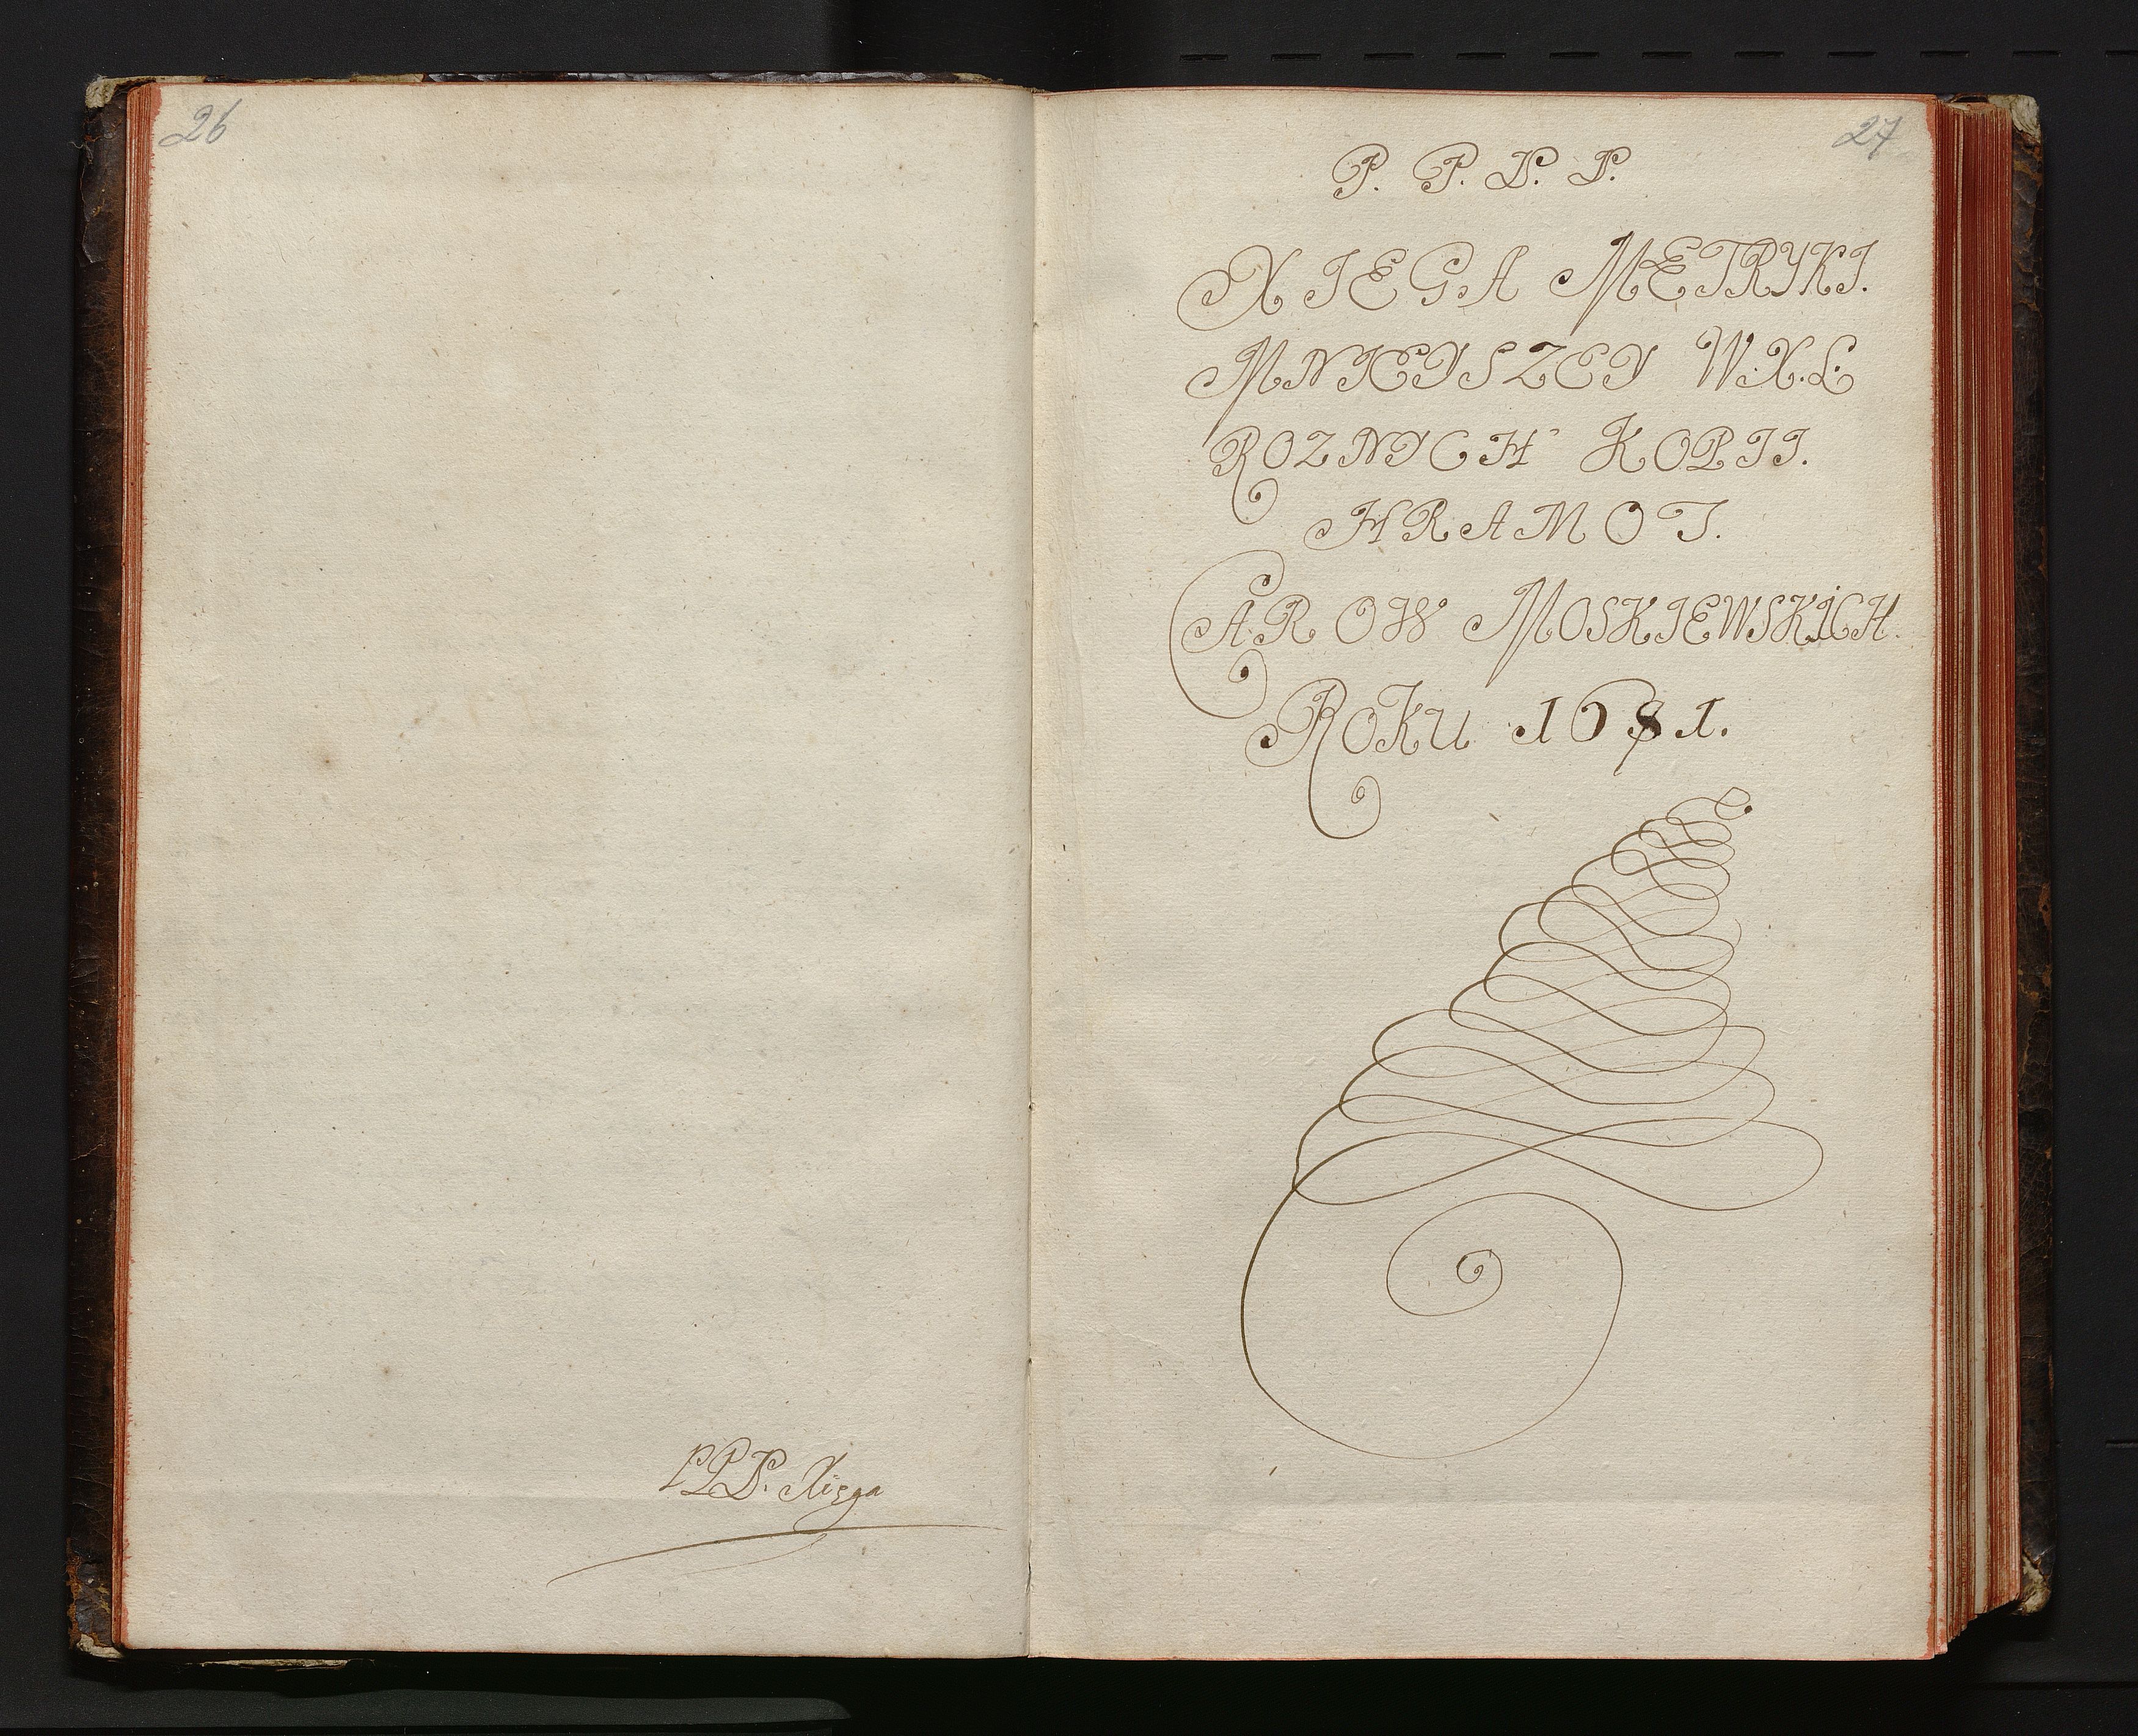 26
PPDP. Xięga
27
P. P. D. P.
XIEGA METRYKI.
MNIEYSZEY W.X.L
ROZNYCH KOPII.
HRAMOT.
CAROW MOSKIEWSKICH.
ROKU 1681.